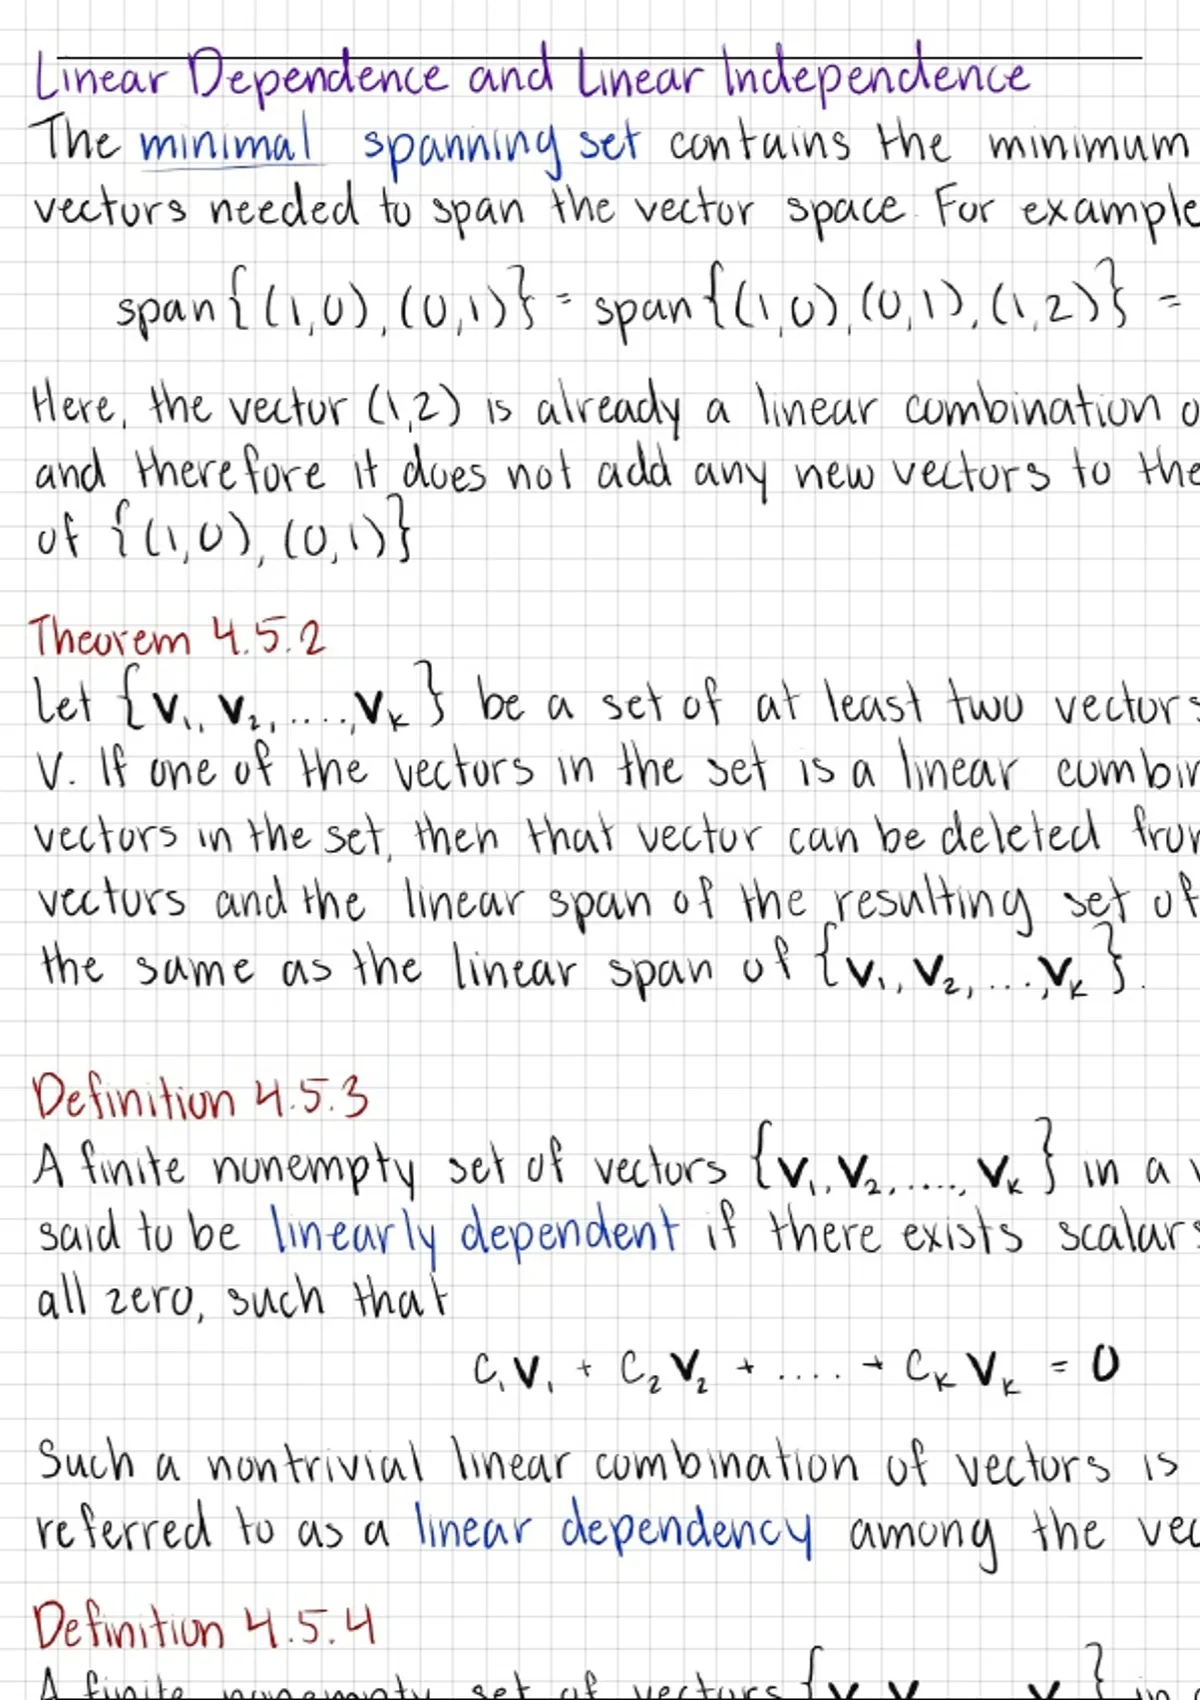 Linear Dependence and Linear Independence
The minimal spanning set contains the minimum
vectors needed to span the vector space. For example
span{(1,0),(0,1)} = span{(1,0),(0,1),(1,2)} =
Here, the vector (1,2) is already a linear combination
and therefore it does not add any new vectors to the
of {(1,0), (0,1)}
Theorem 4.5.2
Let {v₁, v₂, ...., vₖ} be a set of at least two vectors
V. If one of the vectors in the set is a linear combin
vectors in the set, then that vector can be deleted from
vectors and the linear span of the resulting set of
the same as the linear span of {v₁, v₂, ..., vₖ}.
Definition 4.5.3
A finite nonempty set of vectors {v₁, v₂, ...., vₖ} in a
said to be linearly dependent if there exists scalars
all zero, such that
c₁v₁ + c₂v₂ + .... + cₖvₖ = 0
Such a nontrivial linear combination of vectors is
referred to as a linear dependency among the vec
Definition 4.5.4
A finite nonempty set of vectors {v v v} in